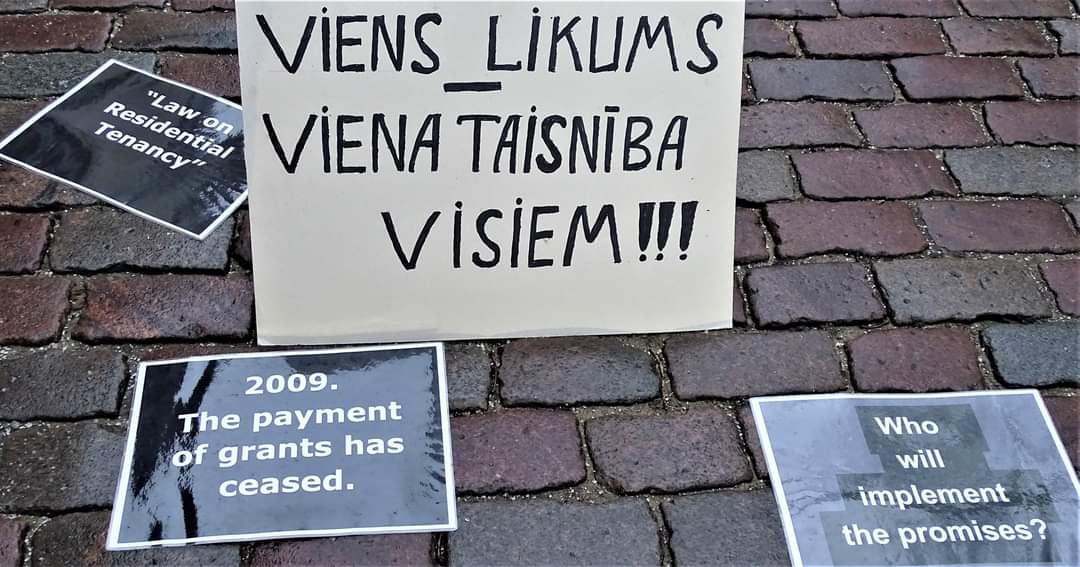 VIENS_LIKUMS
VIENA TAISNĪBA
VISIEM!!!
"Law on
Residential
Tenancy"
2009.
The payment
of grants has
ceased.
Who
will
implement
the promises?